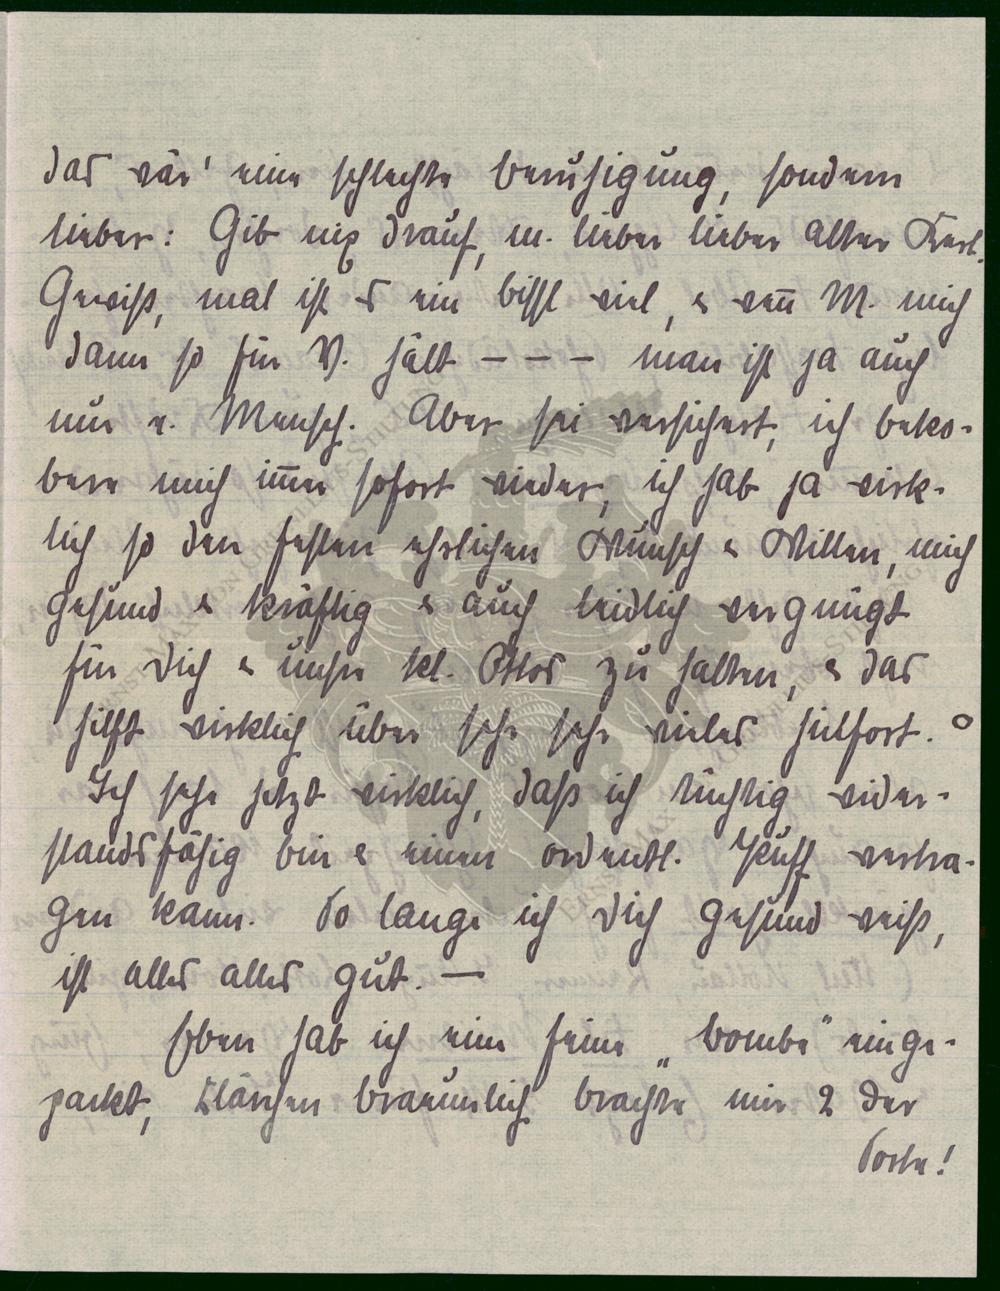 das wär' eine schlechte Beruhigung, sondern
lieber: Gib nix drauf, m. lieber lieber alter Kerl.
Gewiß, mal ist s ein bissl viel, & wenn̅ M. mich
dann so für V. hält – – – man ist ja auch
nur e. Mensch. Aber sei versichert, ich beko-
bere mich im̅er sofort wieder, ich hab ja wirk-
lich so den festen ehrlichen Wunsch & Willen, mich
gesund & kräftig & auch leidlich vergnügt
für Dich & unsre kl. Ottos zu halten, & das
hilft wirklich über sehr sehr vieles hilfort.
Ich sehe jetzt wirklich, daß ich tüchtig wider-
standsfähig bin & einen ordentl. Puff vertra-
gen kann. So lange ich Dich gesund weiß,
ist alles alles gut. —
Eben hab ich eine feine „Bombe" einge-
packt, Klärchen Braeunlich brachte mir 2 der
Sorte!